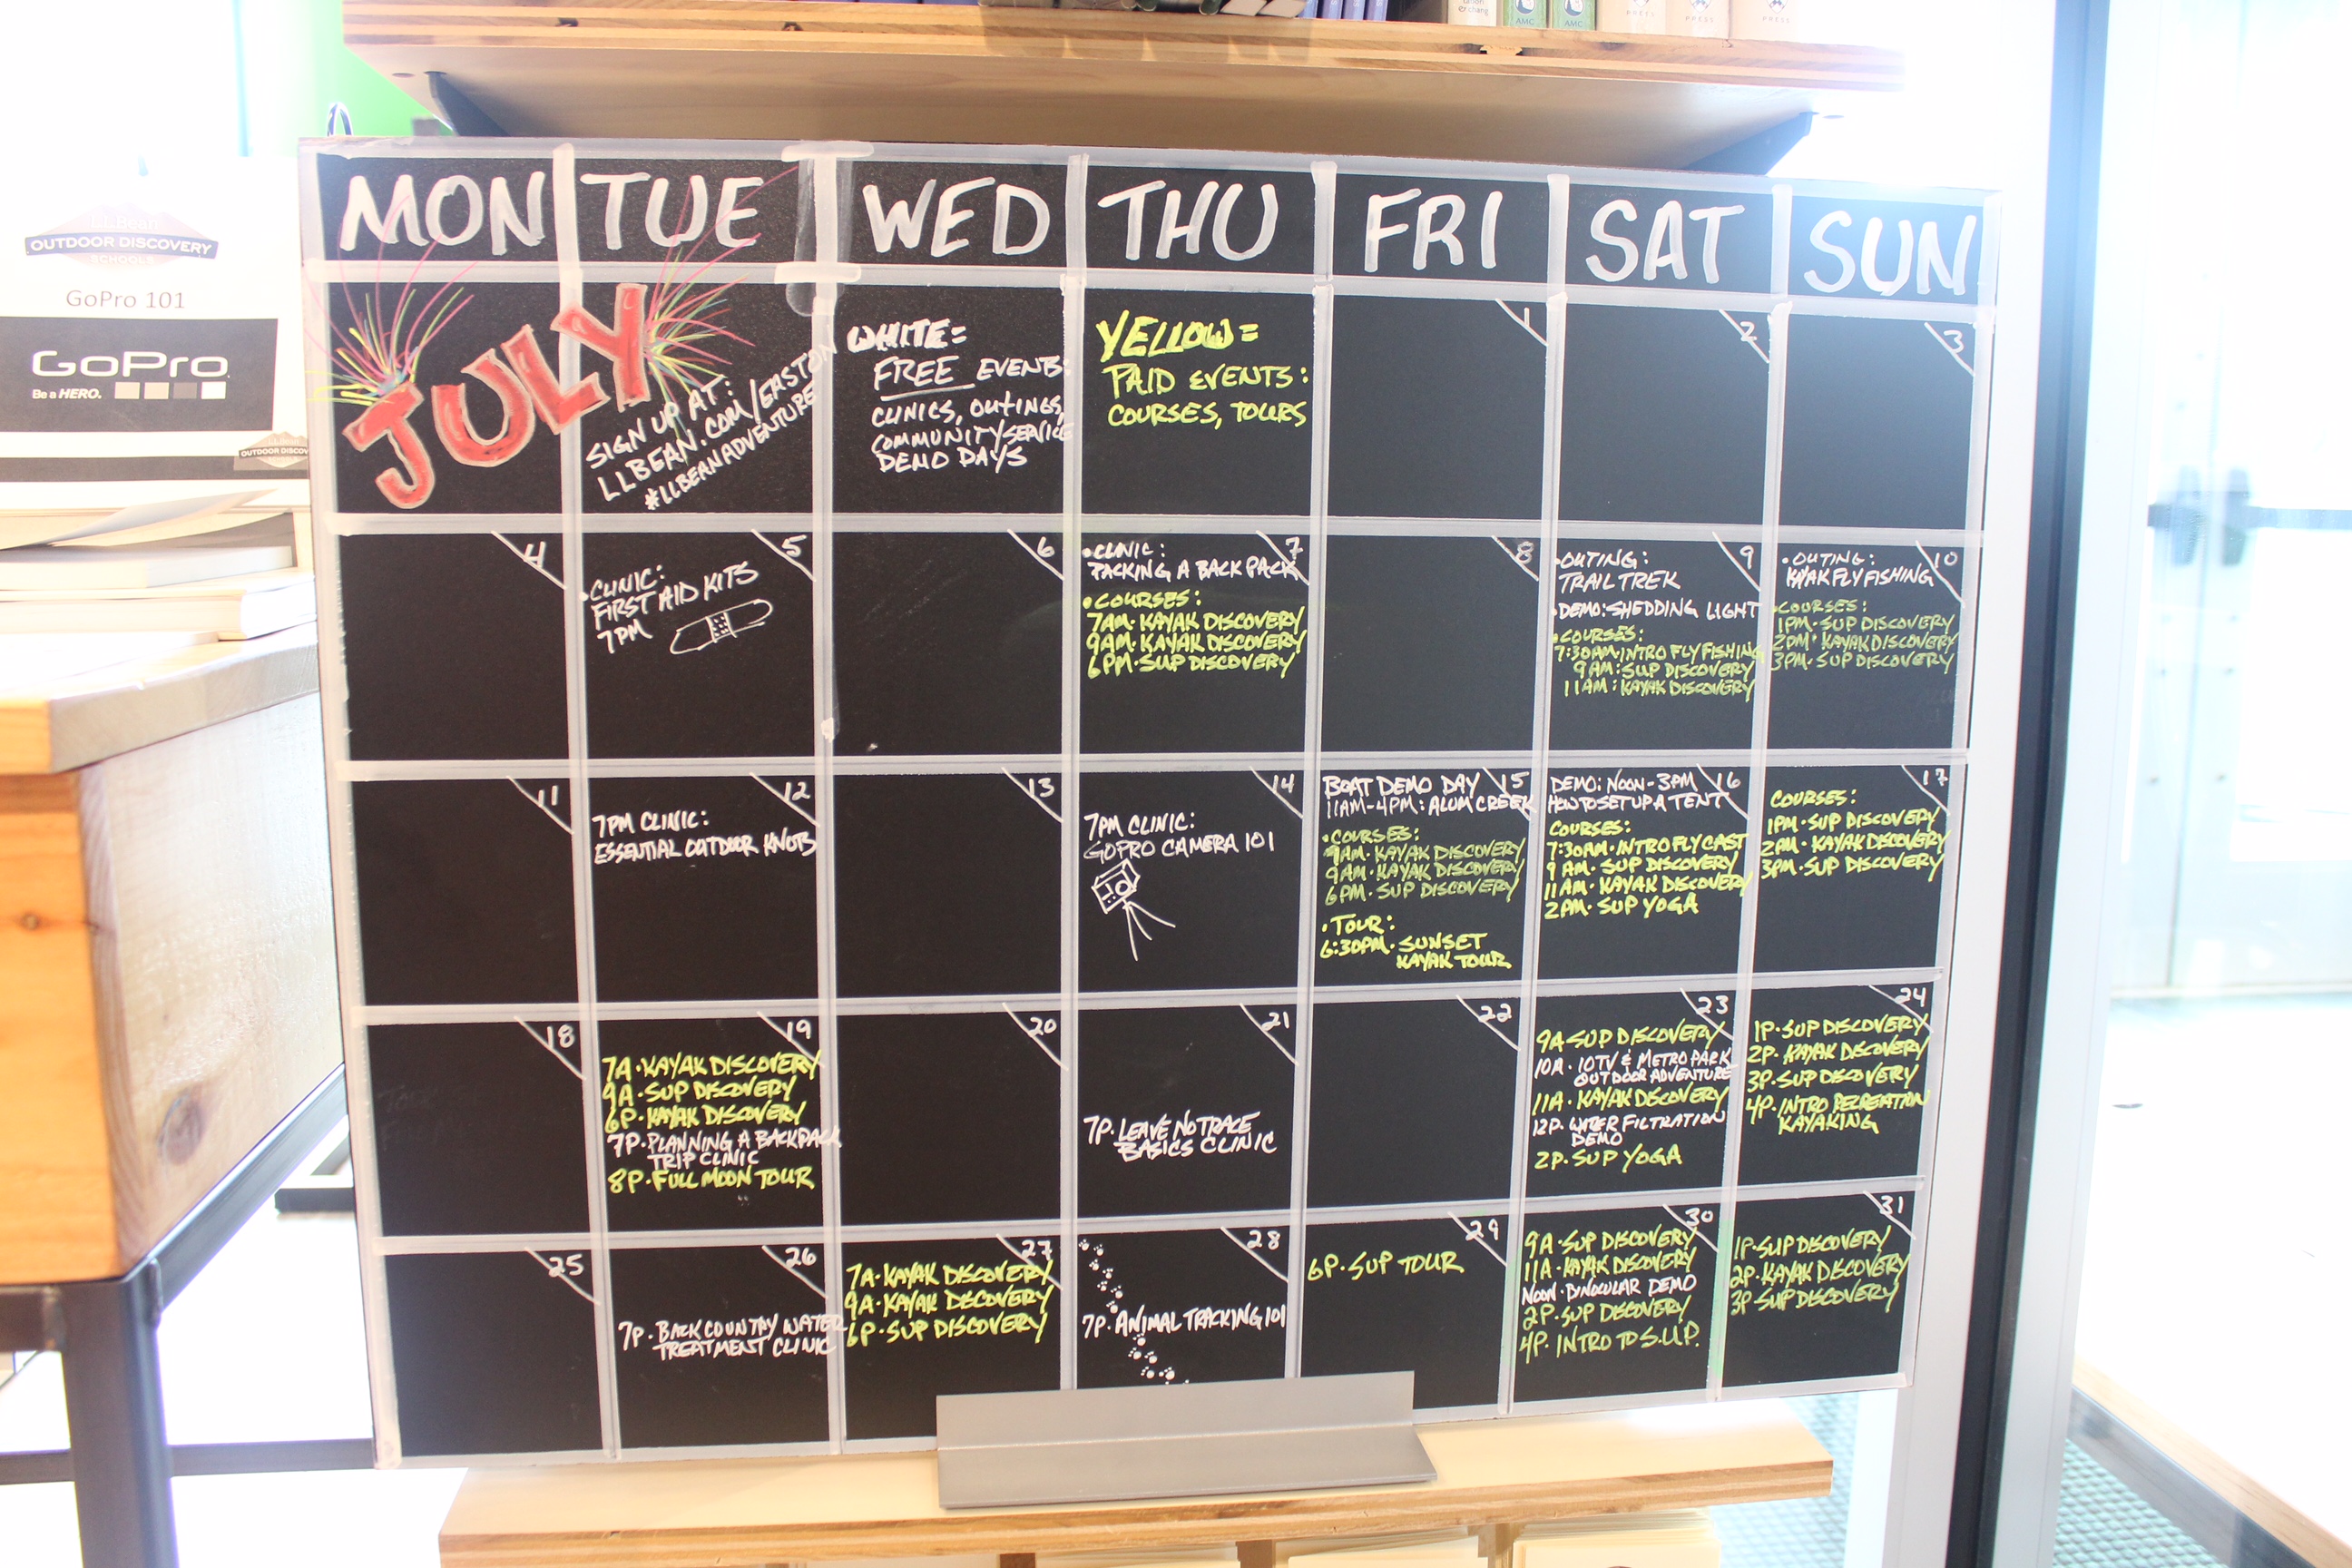 union
& chang
AMC
AMC
PRESS
PRESS
PRESS
L.L.Bean
OUTDOOR DISCOVERY
SCHOOLS
GoPro 101
GoPro
Be a HERO.
L.L.Bean
OUTDOOR DISCOV
MON TUE WED THU FRI SAT SUN
JULY
SIGN UP AT:
LLBEAN.COM/EASTON
#LLBEANADVENTURE
WHITE=
FREE EVENTS:
CLINICS, OUTINGS,
COMMUNITY SERVICE
DEMO DAYS
YELLOW=
PAID EVENTS:
COURSES, TOURS
1
2
3
4
5
• CLINIC:
FIRST AID KITS
7PM
6
7
• CLINIC:
PACKING A BACKPACK
• COURSES:
7AM• KAYAK DISCOVERY
9AM• KAYAK DISCOVERY
6PM• SUP DISCOVERY
8
9
• OUTING:
TRAIL TREK
• DEMO: SHEDDING LIGHT
• COURSES:
7:30AM•INTRO FLY FISHING
9AM: SUP DISCOVERY
11AM: KAYAK DISCOVERY
10
• OUTING:
KAYAK FLY FISHING
• COURSES:
1PM• SUP DISCOVERY
2PM• KAYAK DISCOVERY
3PM• SUP DISCOVERY
11
12
7PM CLINIC:
ESSENTIAL OUTDOOR KNOTS
13
14
7PM CLINIC:
GOPRO CAMERA 101
15
BOAT DEMO DAY
11AM-4PM: ALUM CREEK
• COURSES:
KAYAK DISCOVERY
9AM• KAYAK DISCOVERY
6PM• SUP DISCOVERY
• TOUR:
6:30PM• SUNSET
KAYAK TOUR
16
DEMO: NOON-3PM
HOW TO SET UP A TENT
COURSES:
7:30AM• INTRO FLY CAST
9AM• SUP DISCOVERY
11AM• KAYAK DISCOVERY
2PM• SUP YOGA
17
COURSES:
1PM• SUP DISCOVERY
2PM• KAYAK DISCOVERY
3PM• SUP DISCOVERY
18
19
7A•KAYAK DISCOVERY
9A•SUP DISCOVERY
6P•KAYAK DISCOVERY
7P•PLANNING A BACKPACK
TRIP CLINIC
8P•FULL MOON TOUR
20
21
7P• LEAVE NO TRACE
BASICS CLINIC
22
23
9A SUP DISCOVERY
10A• 10TV & METRO PARK
OUTDOOR ADVENTURE
11A• KAYAK DISCOVERY
12P• WATER FILTRATION
DEMO
2P• SUP YOGA
24
1P•SUP DISCOVERY
2P•KAYAK DISCOVERY
3P•SUP DISCOVERY
4P•INTRO RECREATION
KAYAKING
25
26
7P• BACKCOUNTRY WATER
TREATMENT CLINIC
27
7A•KAYAK DISCOVERY
9A•KAYAK DISCOVERY
6P•SUP DISCOVERY
28
7P• ANIMAL TRACKING 101
29
6P•SUP TOUR
30
9A•SUP DISCOVERY
11A•KAYAK DISCOVERY
NOON•BINOCULAR DEMO
2P•SUP DISCOVERY
4P•INTRO TO S.U.P.
31
1P•SUP DISCOVERY
2P•KAYAK DISCOVERY
3P SUP DISCOVERY